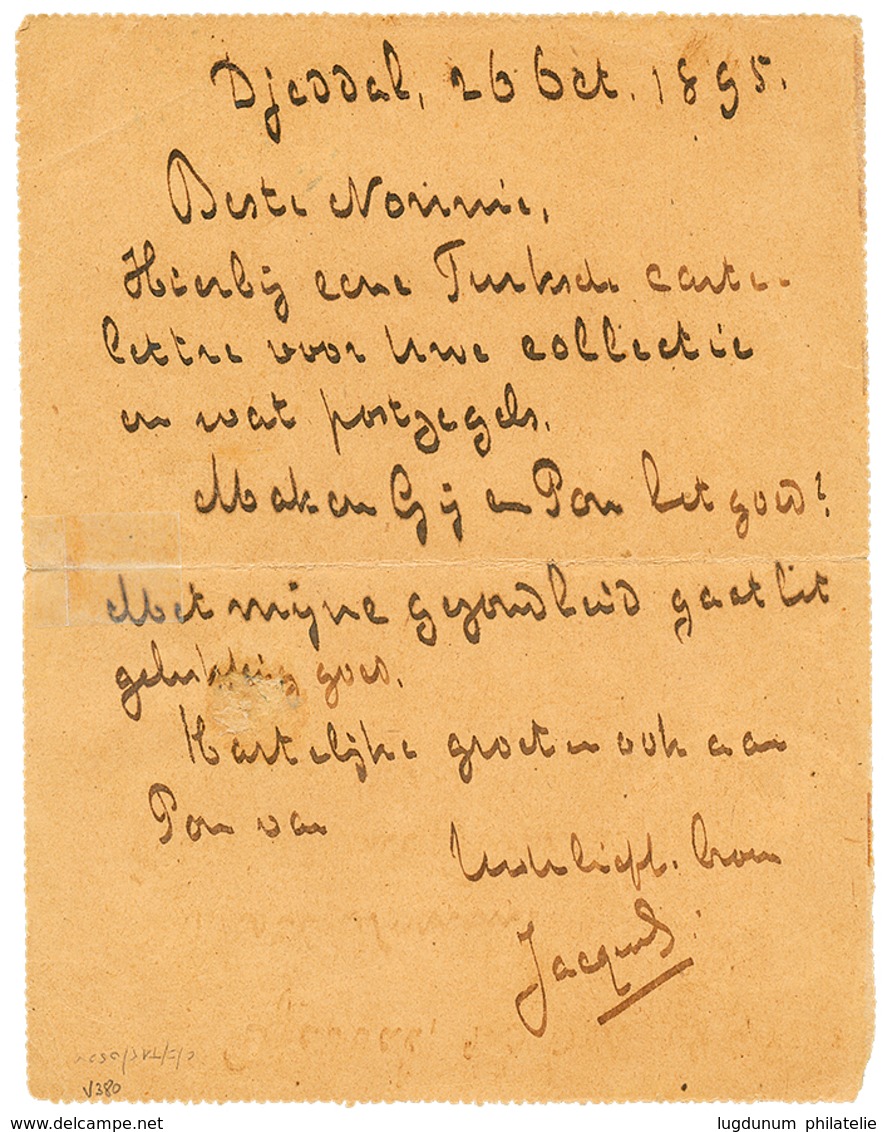 Djeddah, 26 Oct. 1895.
Beste Nonnie,
Hierbij eene Turksche carte-
lettre voor Uwe collectie
en wat postzegels.
Maken Gij en Pon het goed?
Met mijne gezondheid gaat het
gelukkig goed.
Hartelijke groeten ook aan
Pon van
Uwe liefh. broer
Jacques.
V380
lugdunum philatelie